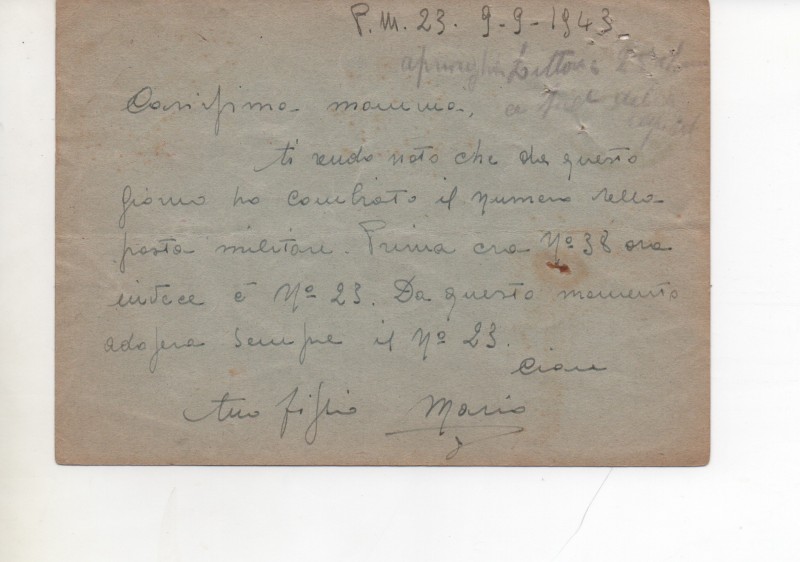 P.M. 23. 9-9-1943.
Carissima mamma,
ti rendo noto che da questo
giorno ho cambiato il numero della
posta militare. Prima era Nº 38 ora
invece è Nº 23. Da questo momento
adopera sempre il Nº 23.
Ciao
tuo figlio Mario